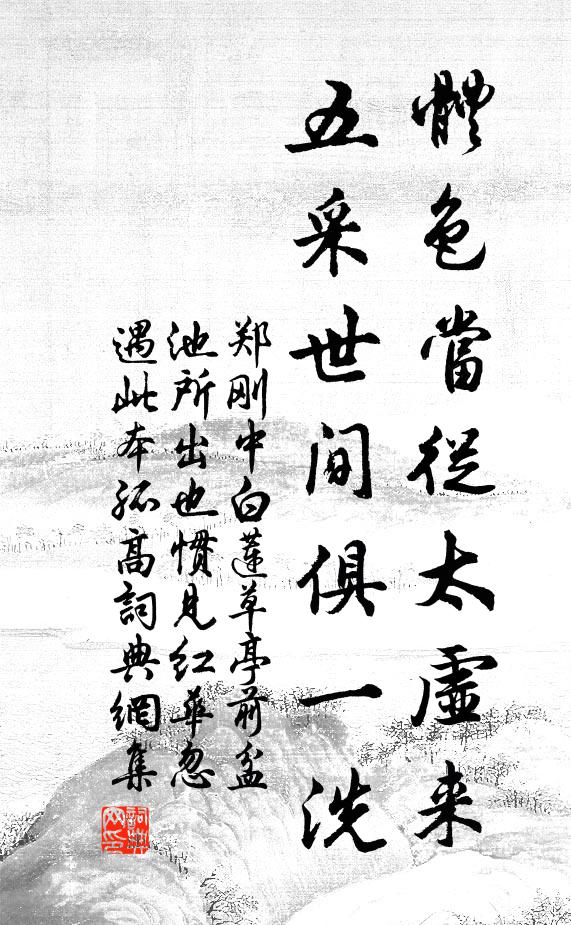 體色當從太虛来
五采世间俱一洗
郑刚中白蓮草亭前盆
池所出也慣見红華忽
遇此本孤高詞典網集